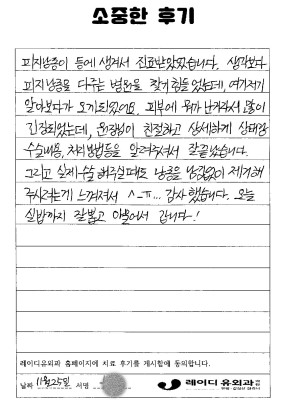 소중한 후기
피지낭종이 등에 생겨서 진료받았었습니다. 생각보다
피지낭종을 다루는 병원을 찾기 힘들었는데, 여기저기
알아보다가 오게되었어요. 피부에 뭐가 난거라서 많이
긴장되었는데, 원장님이 친절하고 상세하게 상태와
수술내용, 처치방법등을 알려주셔서 잘 끝났습니다.
그리고 실제 수술 해주실때도 낭종을 남김없이 제거해
주시려는게 느껴져서 ^-ㅠ... 감사했습니다. 오늘
실밥까지 잘 뽑고 아물어서 갑니다~!
레이디유외과 홈페이지에 치료 후기를 게시함에 동의합니다.
날짜 11월25일 서명 레이디 유외과